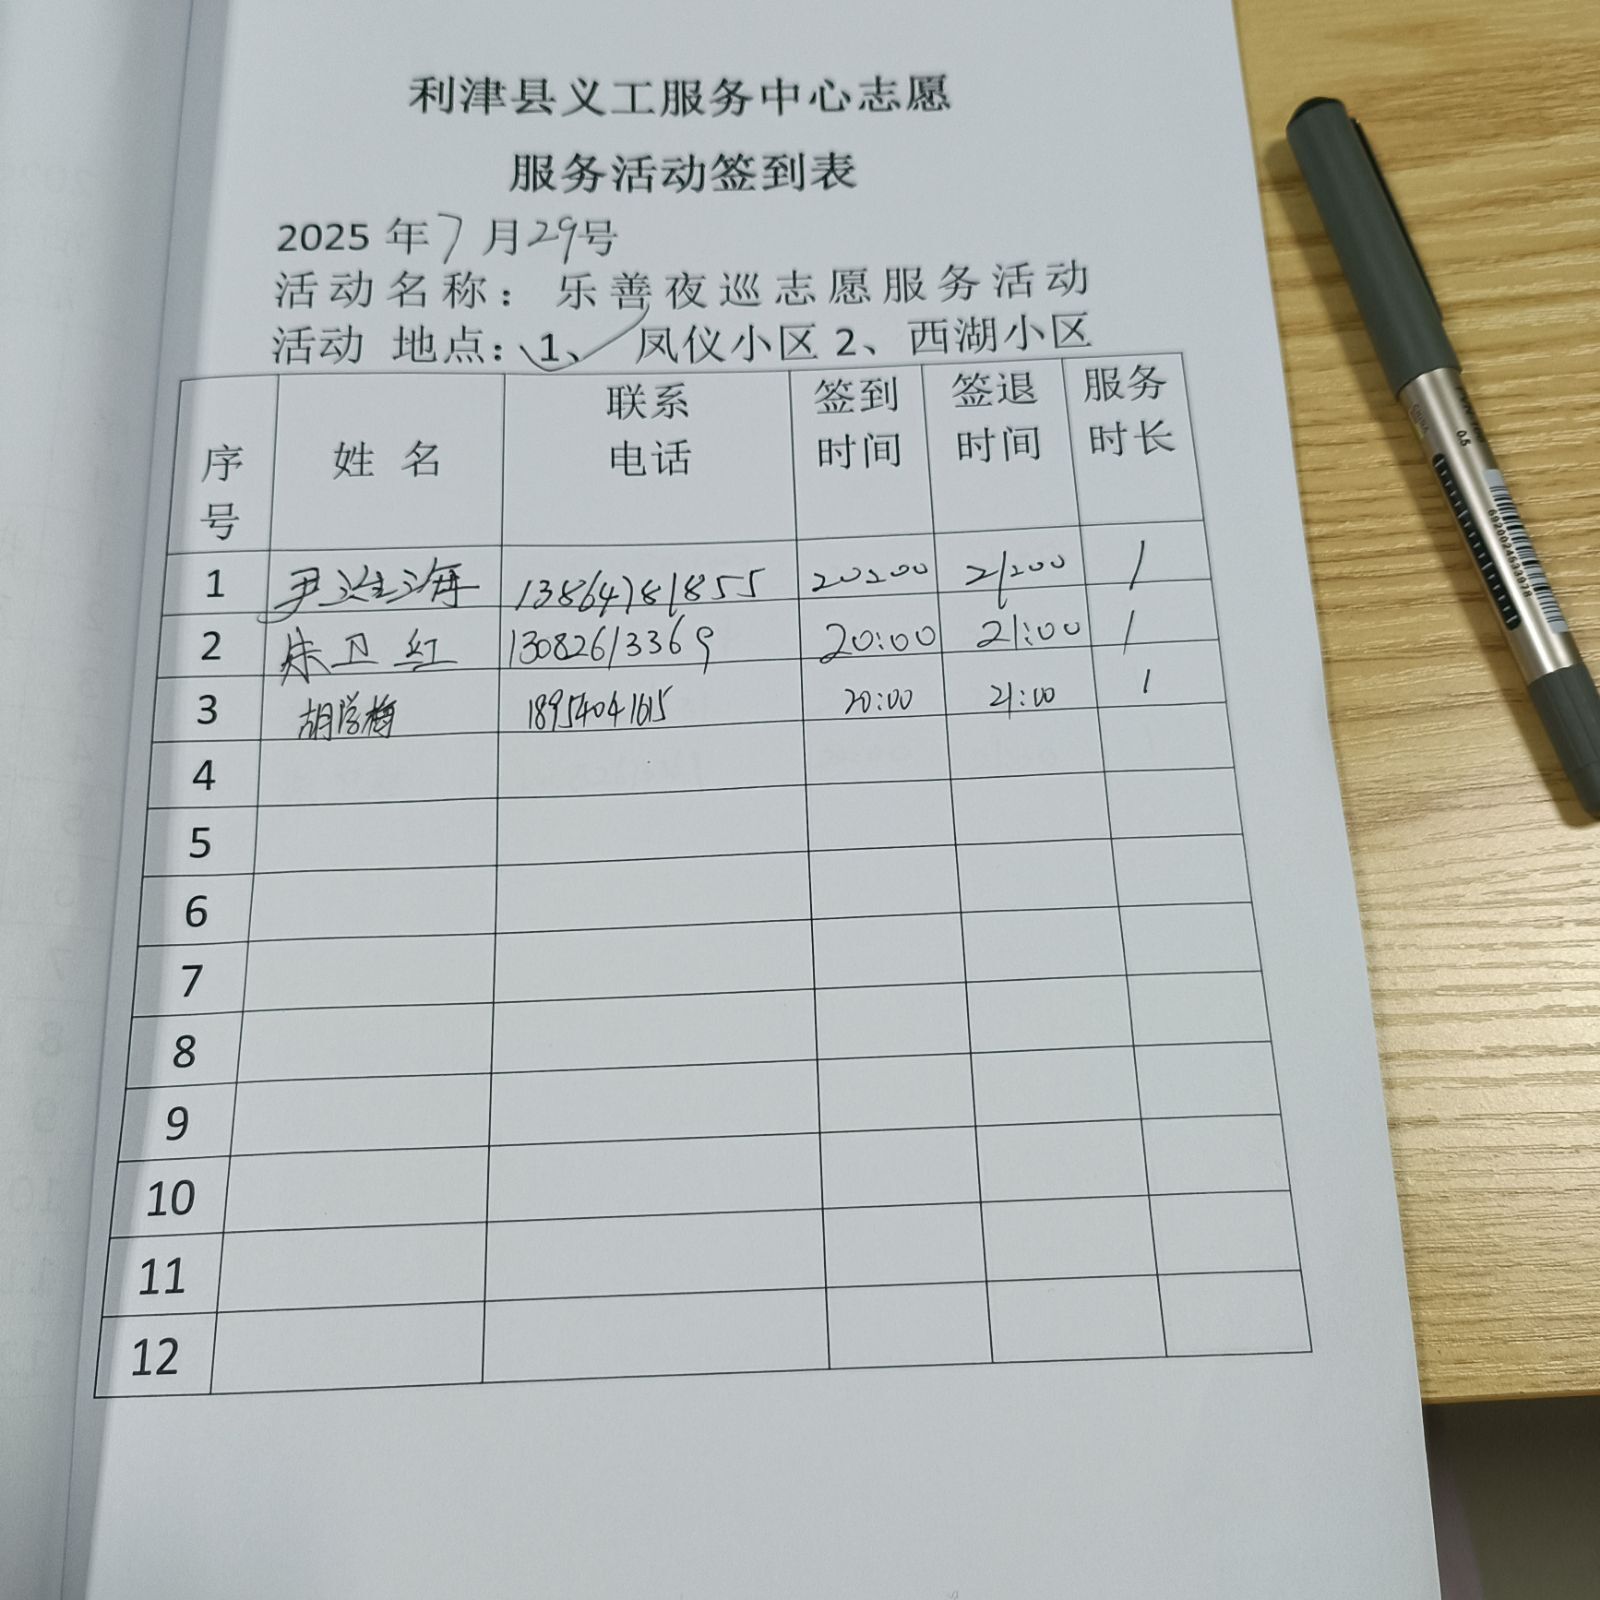 利津县义工服务中心志愿
服务活动签到表
2025 年 7 月 29号
活动名称：乐善夜巡志愿服务活动
活动 地点：1、 凤仪小区 2、西湖小区
序号 姓 名 联系电话 签到时间 签退时间 服务时长
1 尹海 13864781855 20:00 21:00 1
2 朱卫红 13082613369 20:00 21:00 1
3 胡学梅 18954041615 20:00 21:00 1
4
5
6
7
8
9
10
11
12
0.5
6920024533978